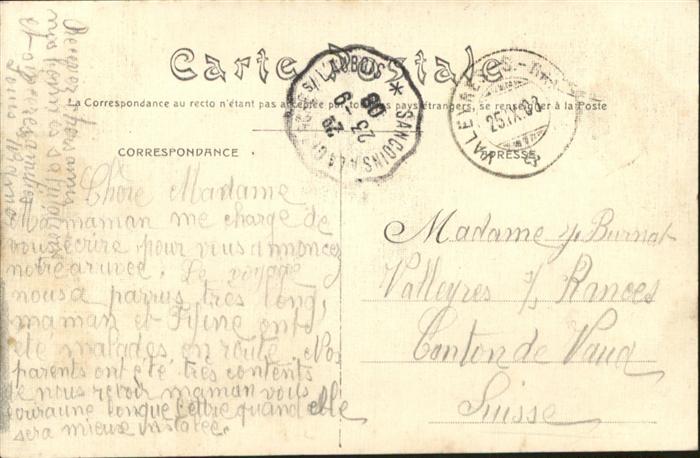 Carte Postale
La Correspondance au recto n'étant pas acceptée par tous les pays étrangers, se renseigner à la Poste
CORRESPONDANCE
ADRESSE
SANCOINS A LA GUERCHE S/ L'AUBOIS
23 -9
08
VALEYRES-S.-RANCES
25.IX.08
Chère Madame
maman me charge de
vous écrire pour vous annoncer
notre arrivée. Le voyage
nous a parrus très long,
maman et Fifine ont
été malades en route. Nos
parents ont été très contents
de nous revoir maman vous
longue lettre quand elle
sera mieux instalée.
Recevez chère amie
nos bonnes
et
Madame Burnat
Valleyres s/ Rances
Canton de Vaud
Suisse